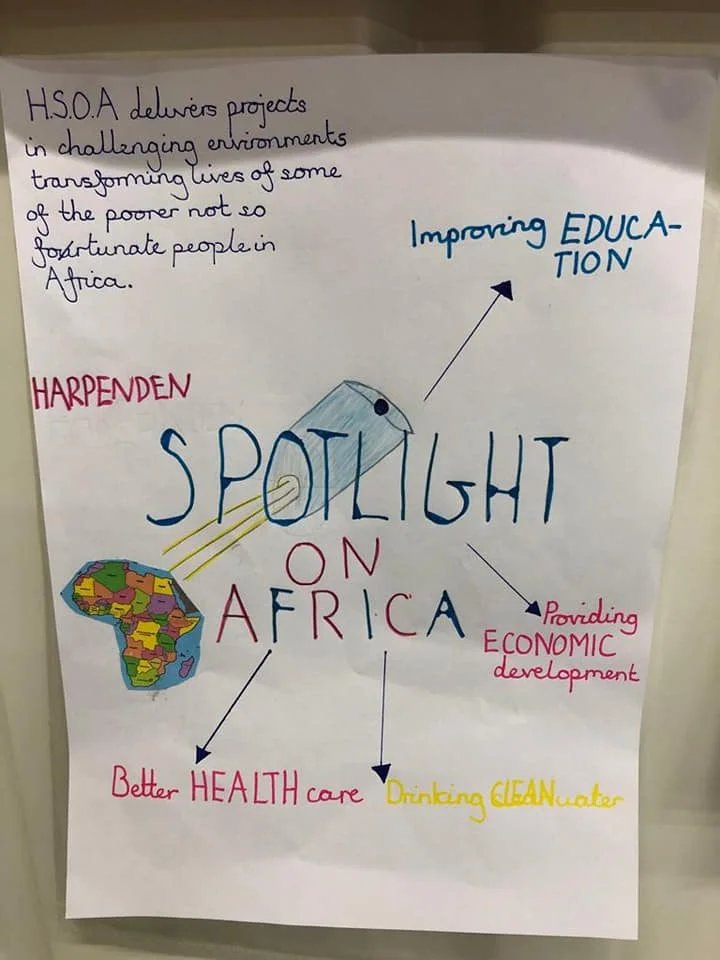 H.S.O.A delivers projects
in challenging environments
transforming lives of some
of the poorer not so
fortunate people in
Africa.
Improving EDUCA-
TION
HARPENDEN
SPOTLIGHT
ON
AFRICA
Providing
ECONOMIC
development
Better HEALTH care
Drinking CLEAN water